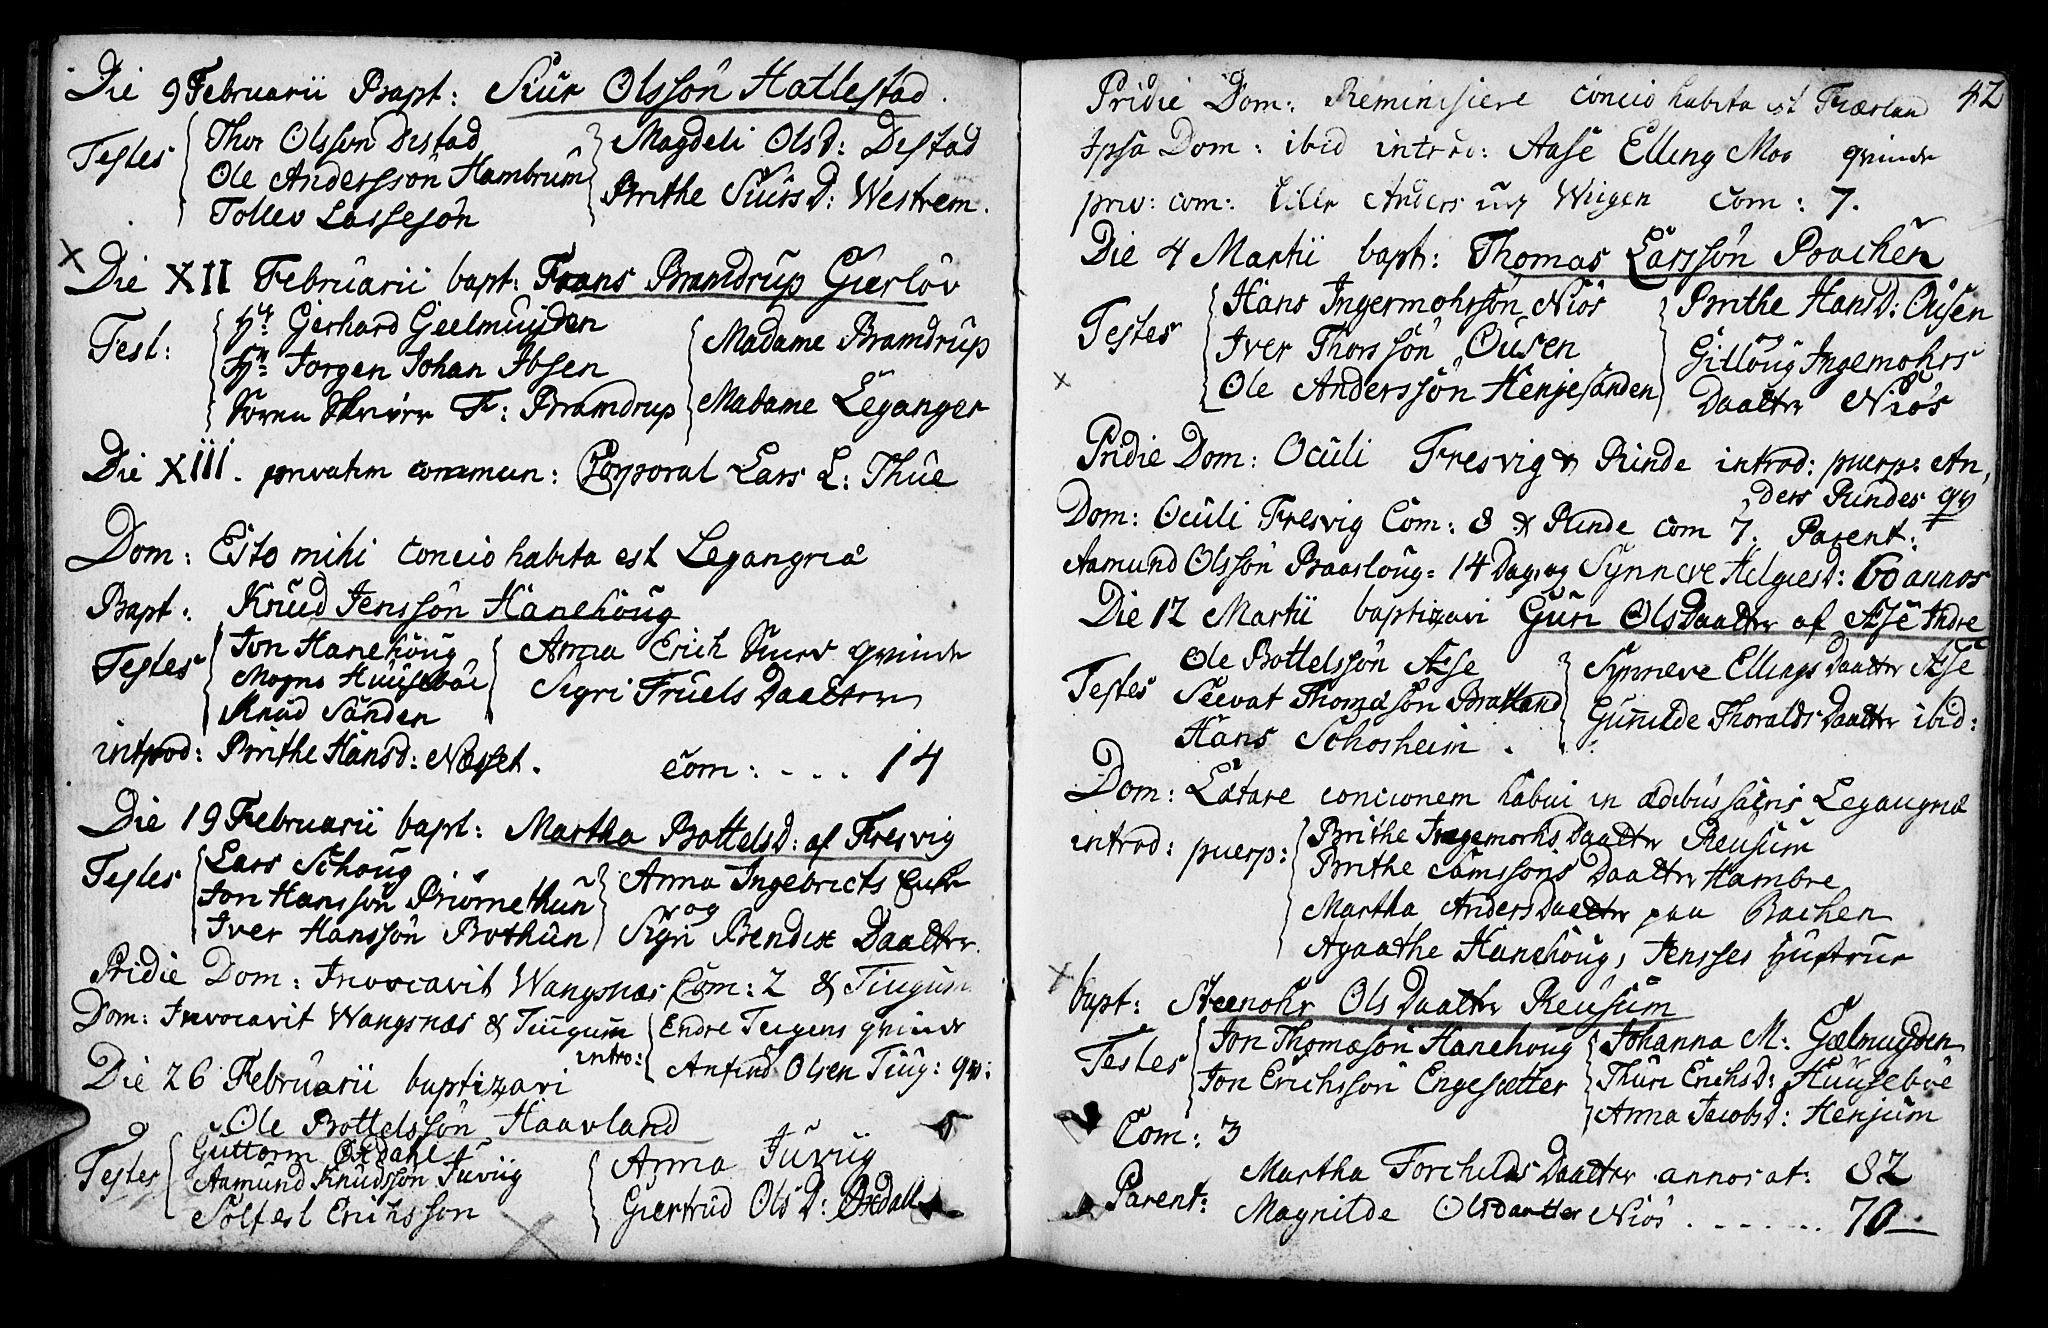 Die 9 Februarii Bapt: Siur Olssön Hatlestad.
Testes Thor Olsson Destad
Ole Anderssön Hambrum
Tollev Lassesön
Magdeli Olsd: Destad
Brithe Siursd: Westrem.
Die XII Februarii bapt: Frans Bramdrup Gierlöv
Test: Hr: Gerhard Geelmuijden
Hr: Jorgen Johan Ibsen
F: Bramdrup
Madame Bramdrup
Madame Leganger
Die XIII. privatim commun: Corporal Lars L: Thue
Dom: Esto mihi concio habita est Legangriæ
Bapt: Knud Jenssön Hanehöug
Testes Jon Hanehöug
Mogns Huuseböe
Knud Sanden
Anna Erich qvinde
Sigri Truels Daatter
introd: Brithe Hansd: Nesset. com: . . . 14
Die 19 Februarii bapt: Martha Bottelsd: af Fresvig
Testes Lars Schoug
Jon Hanssön Priomethun
Iver Hanssön Bothun
Anna Ingebricts
og
Sigri Bendix Daatter.
Pridie Dom: Invocavit Wangsnæs Com: 2 & Tiugum
Dom: Invocavit Wangsnæs & Tiugum
intro: Endre Teigens qvinde
Anfind Olsen Tiug: qv:
Die 26 Februarii baptizavi
Ole Bottelssön Haavland
Testes Guttorm Oxdahl
Aamund Knudssön Juviig
Solfest Erichsson
Anna Juviig
Giertrud Olsd: Oxdall
42
Pridie Dom: Reminisiere concio habita est Fiærland
Ipsa Dom: ibid introd: Aase Elling Moo qvinde
priv: com: Lille Anders Wiigen Com: 7.
Die 4 Martii bapt: Thomas Larssön Poachen
Testes Hans Ingermohrssön Niös
Iver Thorssön Ousen
Ole Anderssön Henjesanden
Brithe Hansd: Ousen
Gitloug Ingemohrs
Daatter Niös
Pridie Dom: Oculi Fresvig & Rinde introd: puerp: An,
ders Rindes qv
Dom: Oculi Fresvig Com: 8 & Rinde com 7. Parent:
Aamund Olssön Braasloug= 14 Dag, og Synneve Helgiesd: 60 annos
Die 12 Martii baptizavi Guri Olsdaatter af Æse Indre
Testes Ole Bottelssön Æse
Seevat Thomæsön Brattland
Hans Schosheim.
Synneve Ellings Daatter Æse
Gunilde Thoralds Daatter ibid:
Dom: Lætare concionem habui in ædibus sacris Legangriæ
introd: puerp: Brithe Ingemorhs Daatter Reusum
Brithe Samssons Daatter Hambre
Martha Anders Daatter paa Bachen
Agaathe Hanehöug, Jensses Hustrue
bapt: Steenohr Ols Daatter Reusum
Testes Jon Thomæsön Hanehoug
Jon Erichsson Engesætter
Johanna M: Gælmuyden
Thuri Erichsd: Huuseböe
Anna Jacobsd: Henjum
Com: 3
Parent: Martha Torchilds Daatter annos at: 82
Magnilde Olsdaatter Niös . . . . . . . 70